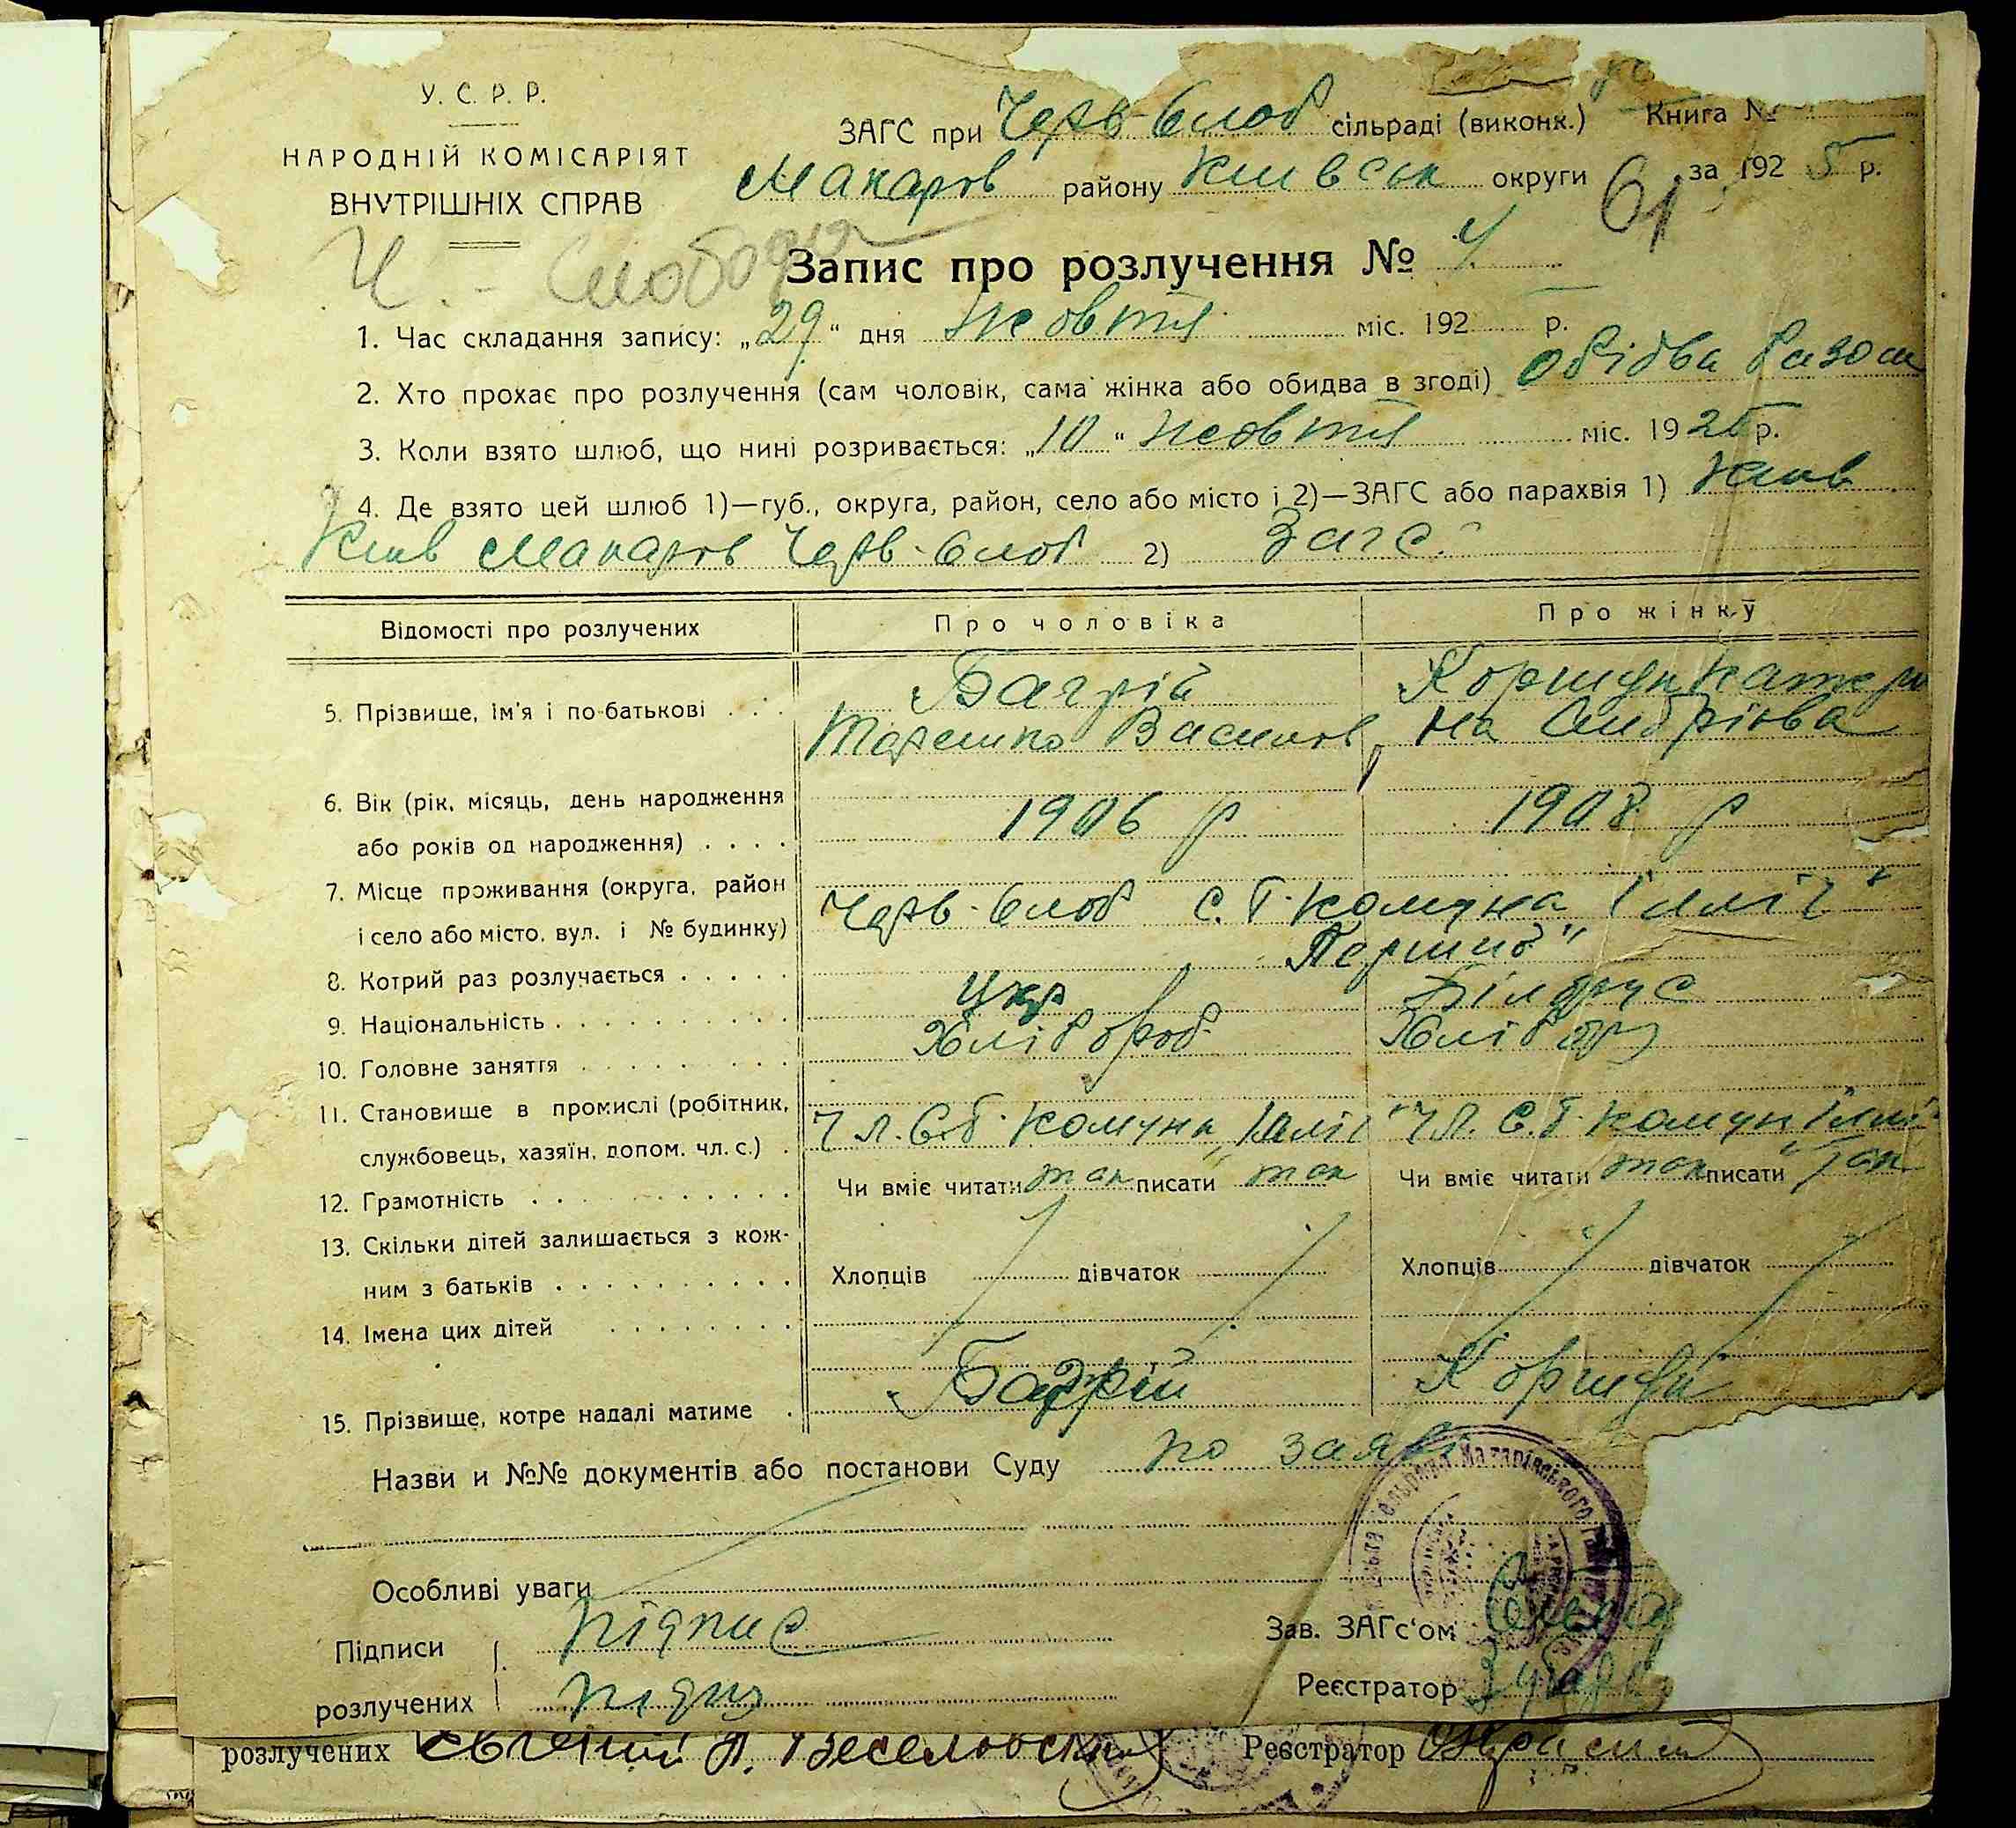 У. С. Р. Р.
НАРОДНІЙ КОМІСАРІЯТ
ВНУТРІШНІХ СПРАВ
ЗАГС при Черв-Слоб сільраді (виконк.) Книга №
Макаров району Київськ округи 61 за 1925 р.
Ч. - Слобода
Запис про розлучення № 4
1. Час складання запису: „29“ дня Жовтня міс. 192 р.
2. Хто прохає про розлучення (сам чоловік, сама жінка або обидва в згоді) Обідва разом
3. Коли взято шлюб, що нині розривається: „10“ Жовтня міс. 1925 р.
4. Де взято цей шлюб 1)—губ., округа, район, село або місто і 2)—ЗАГС або парахвія 1) Київ
Київ Макаров Черв-Слоб 2) Загс.
Відомості про розлучених Про чоловіка Про жінку
5. Прізвище, ім'я і по-батькові . . . Багрій Коршун Катери
Василов на Андріева
6. Вік (рік, місяць, день народження
або років од народження) . . . . 1906 р 1908 р
7. Місце проживання (округа, район
і село або місто, вул. і № будинку) Черв-Слоб С. Г. Комуна „Ілліч“
8. Котрий раз розлучається . . . . . Перший
9. Національність . . . . . . . . . . Укр Білорус
10. Головне заняття . . . . . . . . . Хлібороб Хлібор
11. Становище в промислі (робітник,
службовець, хазяїн, допом. чл. с.) . Чл. С.Г. Комуни „Ілліч“ Чл. С. Г. Комун „Ілліч“
12. Грамотність . . . . . . . . . . Чи вміє читати так писати так Чи вміє читати так писати так
13. Скільки дітей залишається з кож-
ним з батьків . . . . . . . . . . Хлопців дівчаток Хлопців дівчаток
14. Імена цих дітей . . . . . . . .
15. Прізвище, котре надалі матиме . Багрій Коршун
Назви и №№ документів або постанови Суду по заяві
Особливі уваги
Підписи підпис Зав. ЗАГс'ом
розлучених підпис Реєстратор
розлучених Євгений П. Веселовский Реєстратор